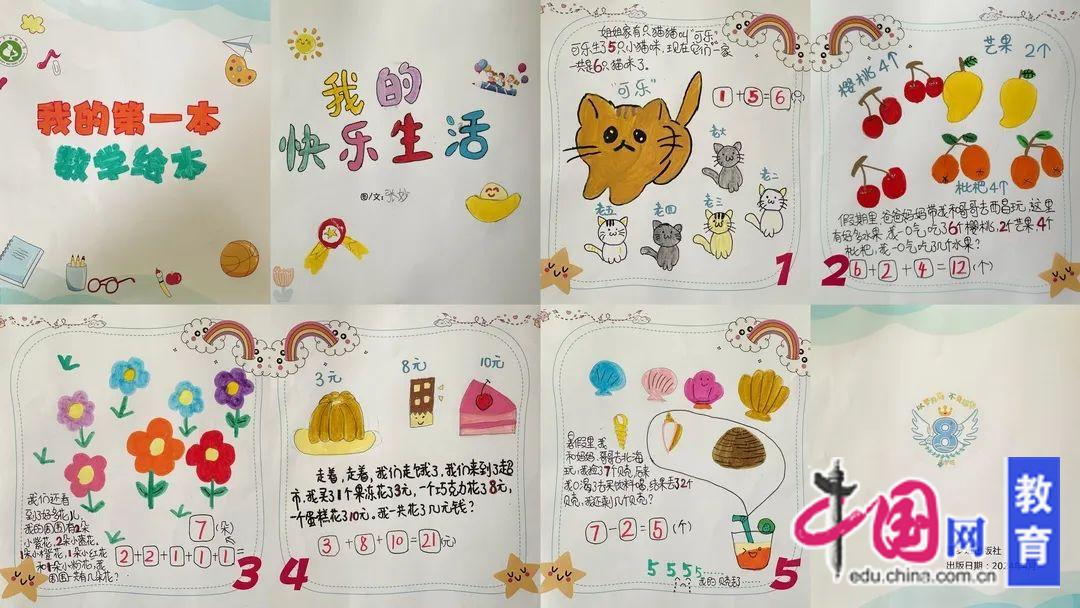 我的第一本
数学绘本
我的
快乐生活
图/文:张妙
姐姐家有只猫猫叫“可乐”
可乐生了5只小猫咪,现在它们一家
一共是6只猫咪了。
“可乐”
1+5=6(只)
老大
老二
老五
老四
老三
1
樱桃6个
芒果 2个
枇杷4个
假期里,爸爸妈妈带我和哥哥去西昌玩,这里
有好多水果,我一口气吃了6个樱桃,2个芒果,4个
枇杷,我一口气吃了几个水果?
6+2+4=12(个)
2
我们还看
到了好多花儿,
我的周围有2朵
小紫花,2朵小蓝花,
1朵小橙花,1朵小红花
和1朵小粉花,我
周围一共有几朵花?
7(朵)
2+2+1+1+1=
3
3元
8元
10元
走着,走着,我们走饿了,我们来到了超
市,我买了1个果冻花了3元,一个巧克力花了8元,
一个蛋糕花了10元。我一共花了几元钱?
3+8+10=21(元)
4
暑假里,我
和妈妈、哥哥去北海
玩,我捡了7个贝壳,后来
我口渴了去买饮料喝,结果丢了2个
贝壳,我还剩几个贝壳?
7-2=5(个)
5 5 5 5
5
8
出版社
出版日期:202
中国网
教育
edu.china.com.cn